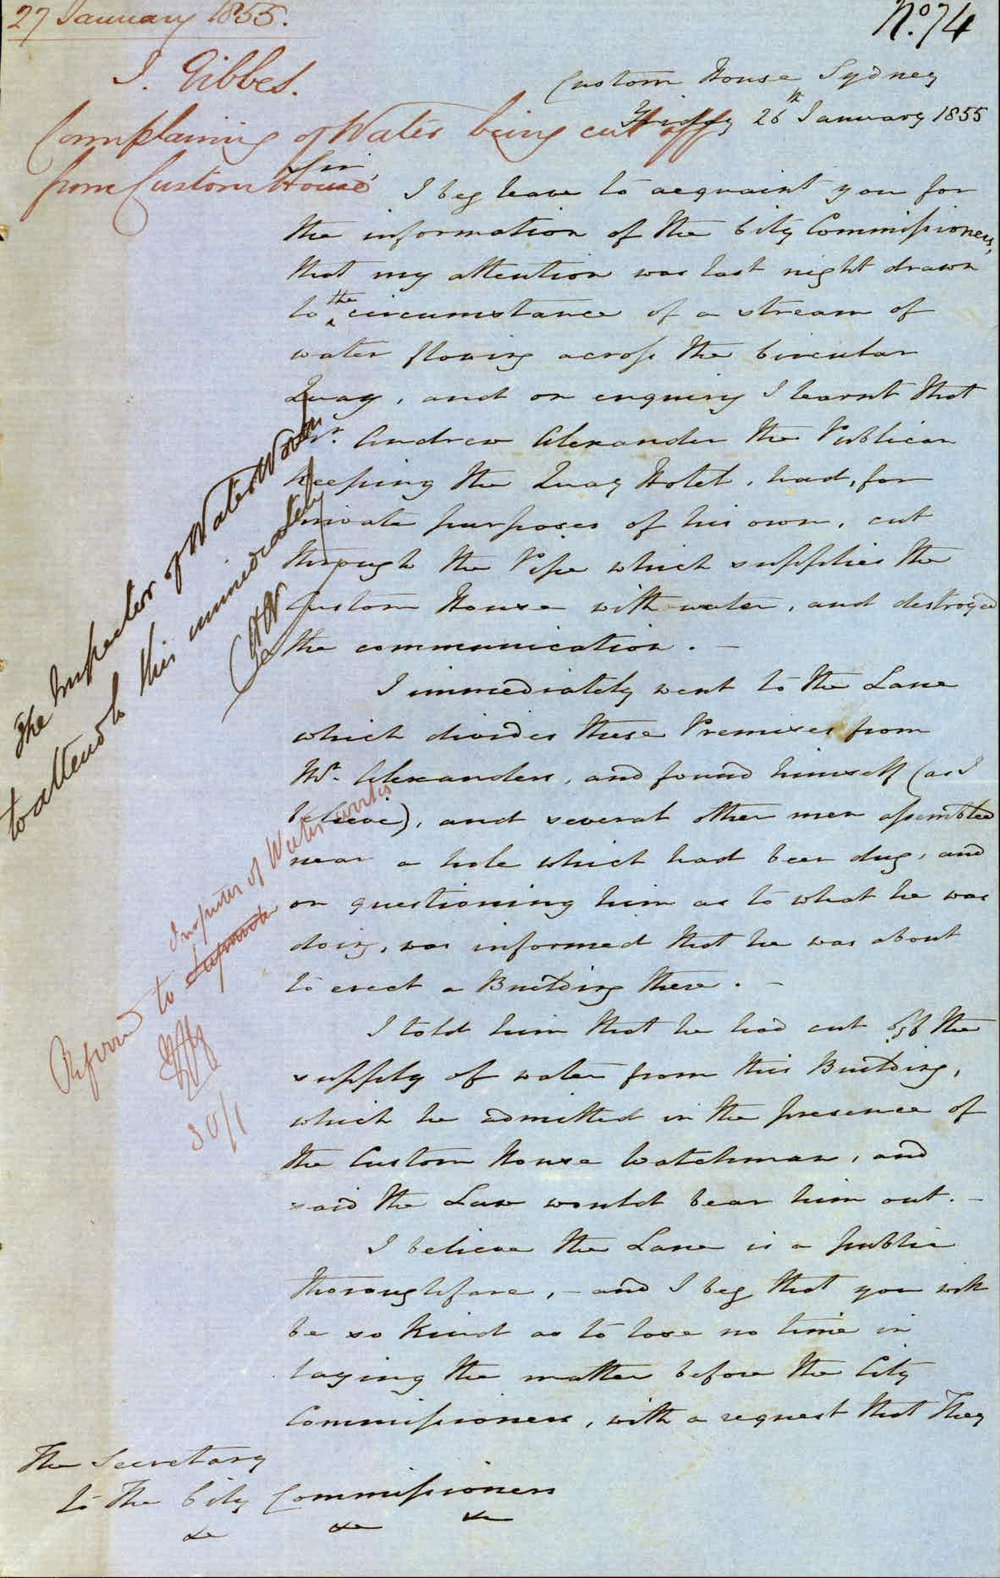 27 January 1855.
No. 74
J. Gibbes.
Complaining of Water being cut off
from Custom House
Custom House Sydney
Friday 26th January 1855
Sir,
I beg leave to acquaint you for
the information of the City Commissioners,
that my attention was last night drawn
to the circumstance of a stream of
water flowing across the Circular
Quay, and on enquiry I learnt that
Mr. Andrew Alexander the Publican
keeping the Quay Hotel, had, for
private purposes of his own, cut
through the Pipe which supplies the
Custom House with water, and destroyed
the communication. —
I immediately went to the Lane
which divides these Premises from
Mr. Alexanders, and found himself (as I
believe), and several other men assembled
near a hole which had been dug, and
on questioning him as to what he was
doing, was informed that he was about
to erect a Building there. —
I told him that he had cut off the
supply of water from this Building,
which he admitted in the presence of
the Custom House Watchman, and
said the Law would bear him out. —
I believe the Lane is a public
thoroughfare, — and I beg that you will
be so kind as to lose no time in
laying the matter before the City
Commissioners, with a request that They
The Secretary
to The City Commissioners
&c &c &c
The Inspector of Water Works
to attend to this immediately
Inspector of Water works
Referred to
30/1